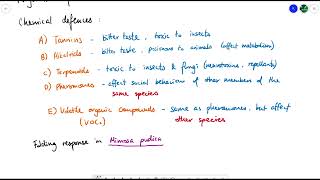 Chemical defences :
A) Tannins - bitter taste, toxic to insects
B) Alkaloids - bitter taste, poisonous to animals (affect metabolism)
C) Terpenoids - toxic to insects & fungi (neurotoxins, repellants)
D) Pheromones - affect social behaviour of other members of the
same species
E) Volatile organic compounds - same as pheromones, but affect
(VOCs) other species
Folding response in Mimosa pudica